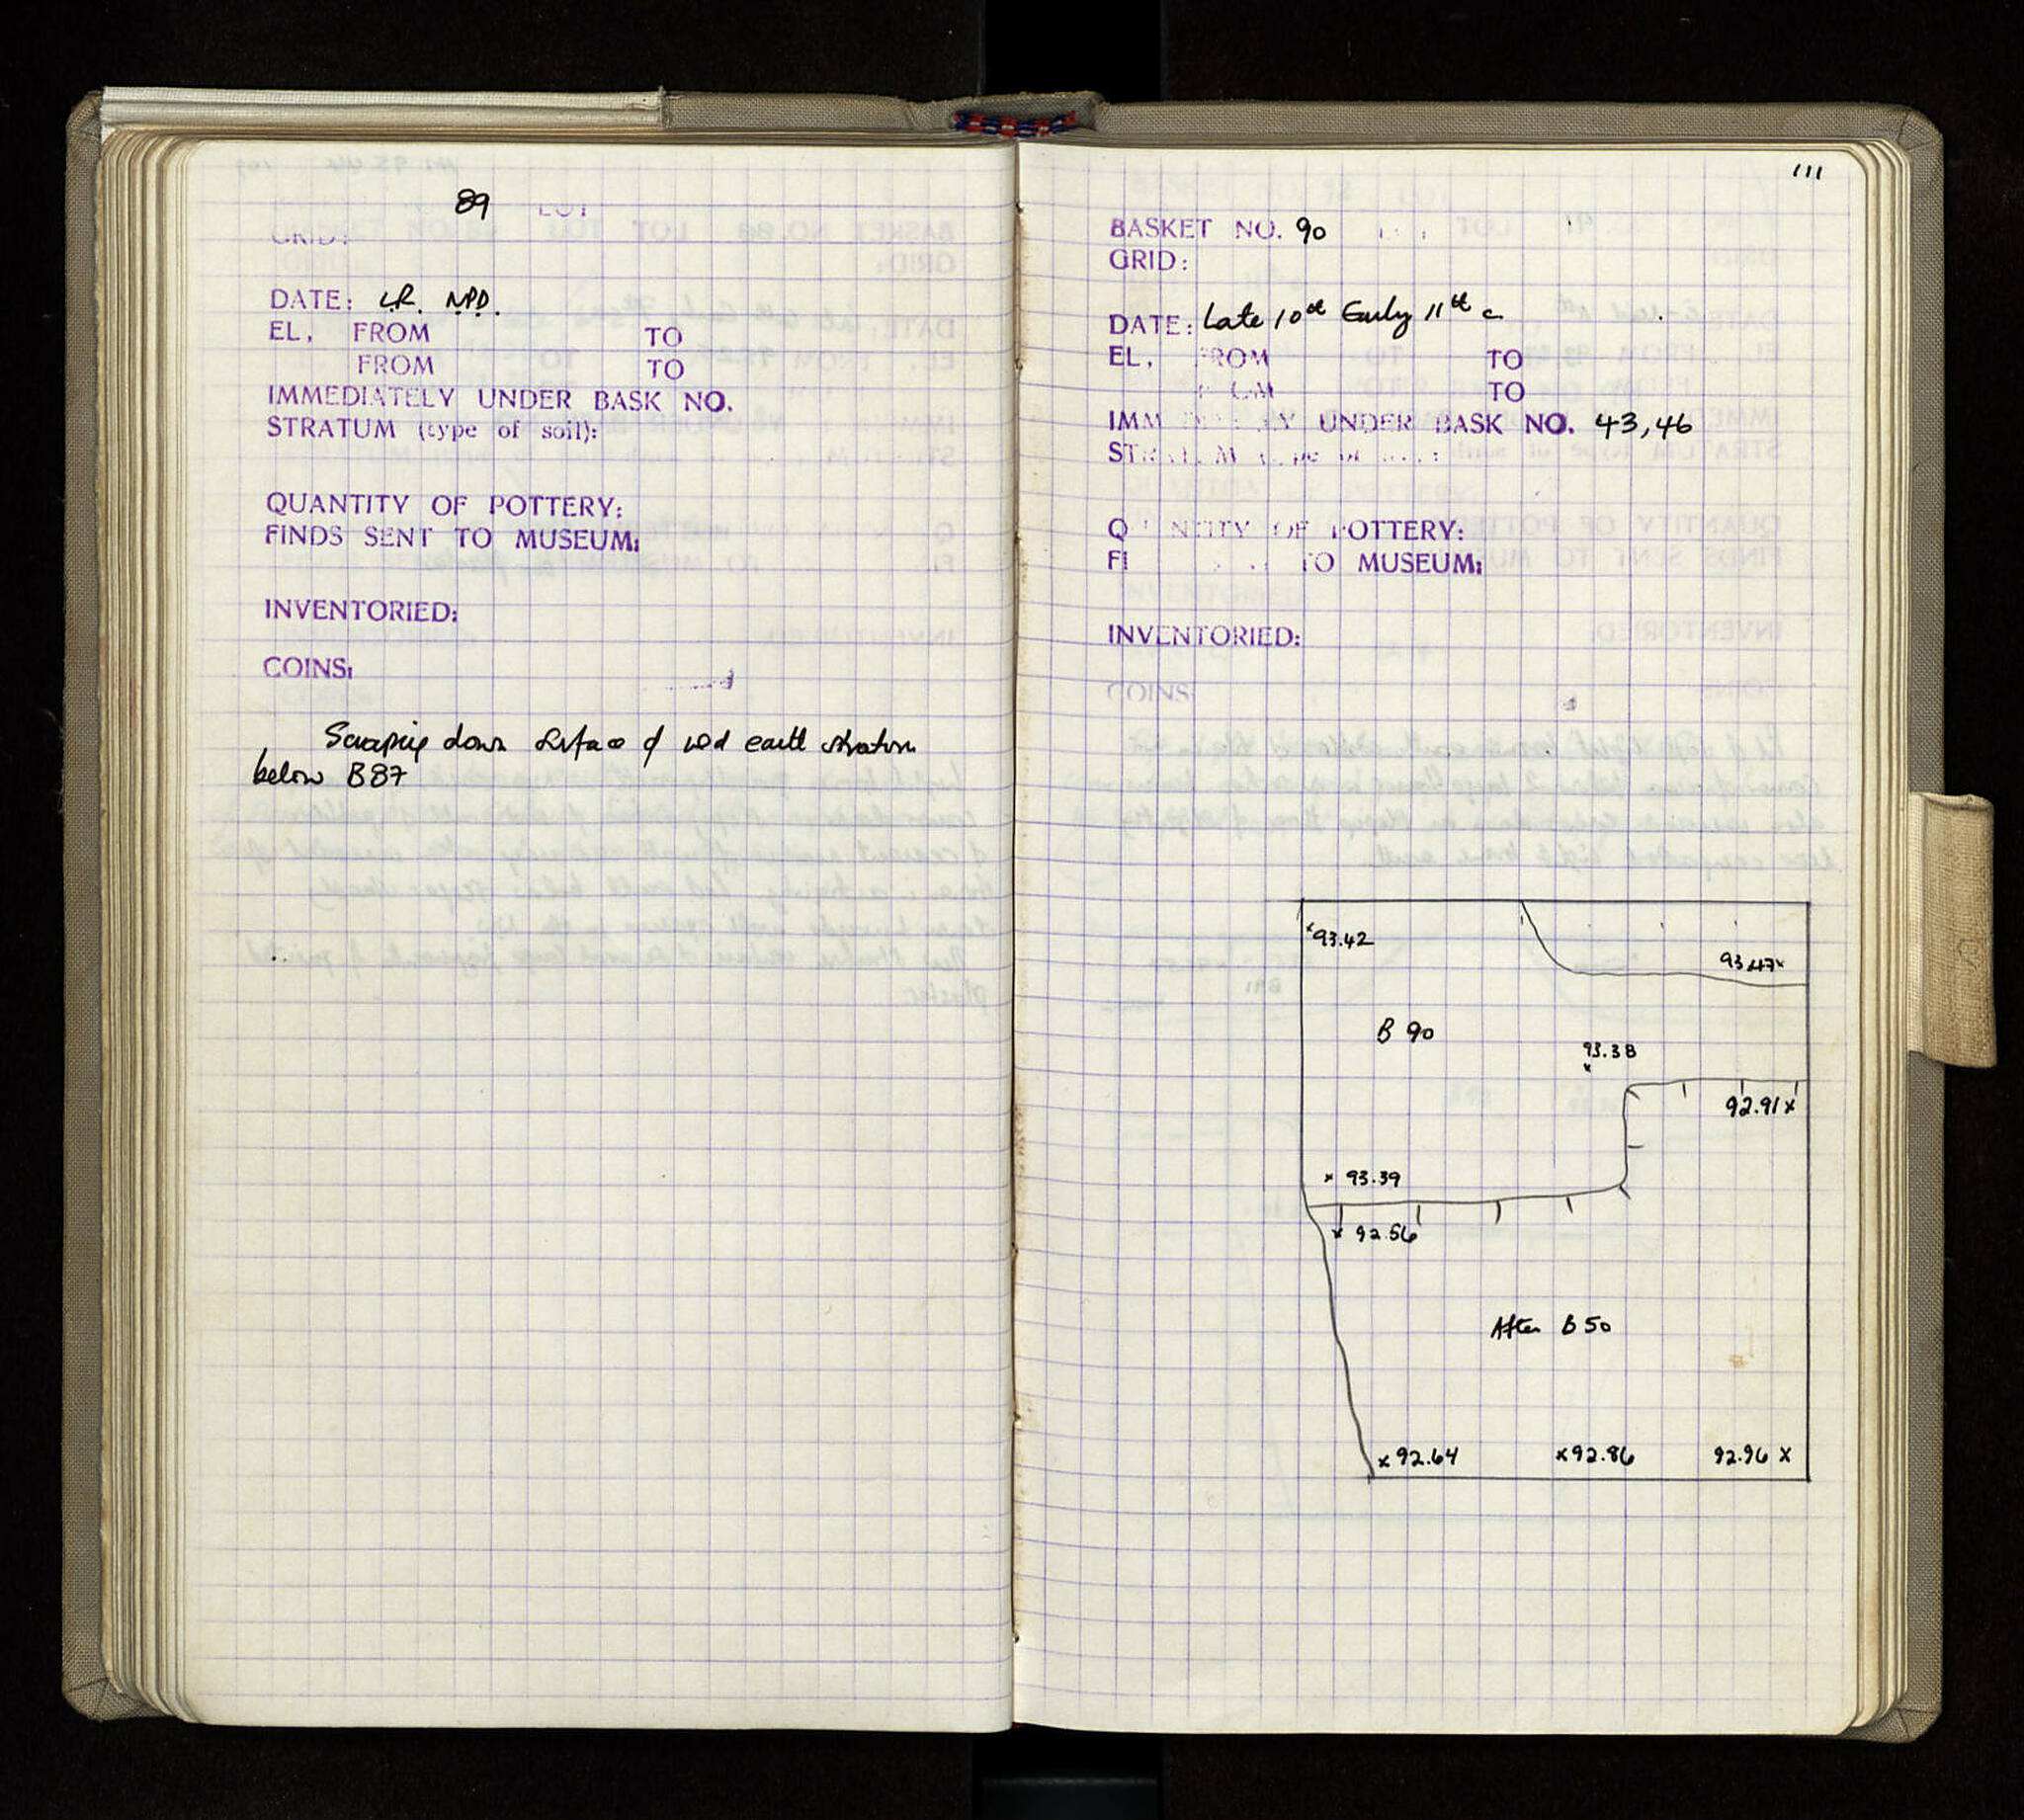 89 LOT
GRID:
DATE: LR. NPD.
EL, FROM TO
FROM TO
IMMEDIATELY UNDER BASK NO.
STRATUM (type of soil):
QUANTITY OF POTTERY:
FINDS SENT TO MUSEUM:
INVENTORIED:
COINS:
Scraping down surface of red earth stratum
below B87
111
BASKET NO. 90
GRID:
DATE: Late 10th Early 11th c
EL, FROM TO
FROM TO
IMMEDIATELY UNDER BASK NO. 43,46
STRATUM type of soil:
QUANTITY OF POTTERY:
FI TO MUSEUM:
INVENTORIED:
COINS
x93.42
93.47x
B 90
93.38
x
92.91x
x 93.39
x 92.56
After B50
x92.64 x92.86 92.96 x